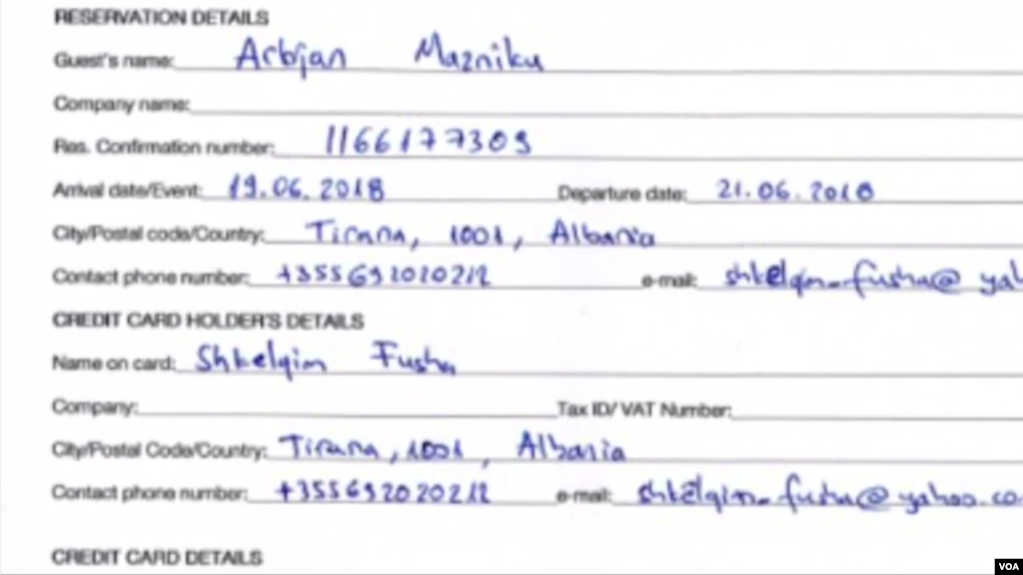 RESERVATION DETAILS
Guest's name: Arbjan Mazniku
Company name:
Res. Confirmation number: 1166177309
Arrival date/Event: 19.06.2018 Departure date: 21.06.2018
City/Postal code/Country: Tirana, 1001, Albania
Contact phone number: +355692020212 e-mail: shkelqim_fusha@yah
CREDIT CARD HOLDER'S DETAILS
Name on card: Shkelqim Fusha
Company: Tax ID/ VAT Number:
City/Postal Code/Country: Tirana, 1001, Albania
Contact phone number: +355692020212 e-mail: shkelqim_fusha@yahoo.co
CREDIT CARD DETAILS
VOA